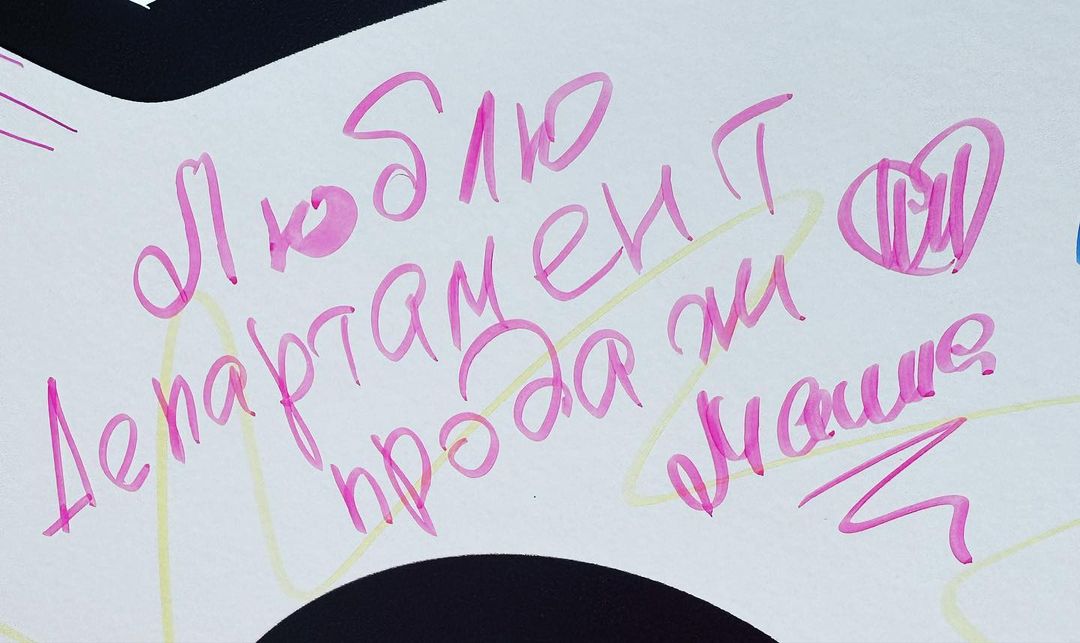 Люблю
Департамент
продажи
Маше